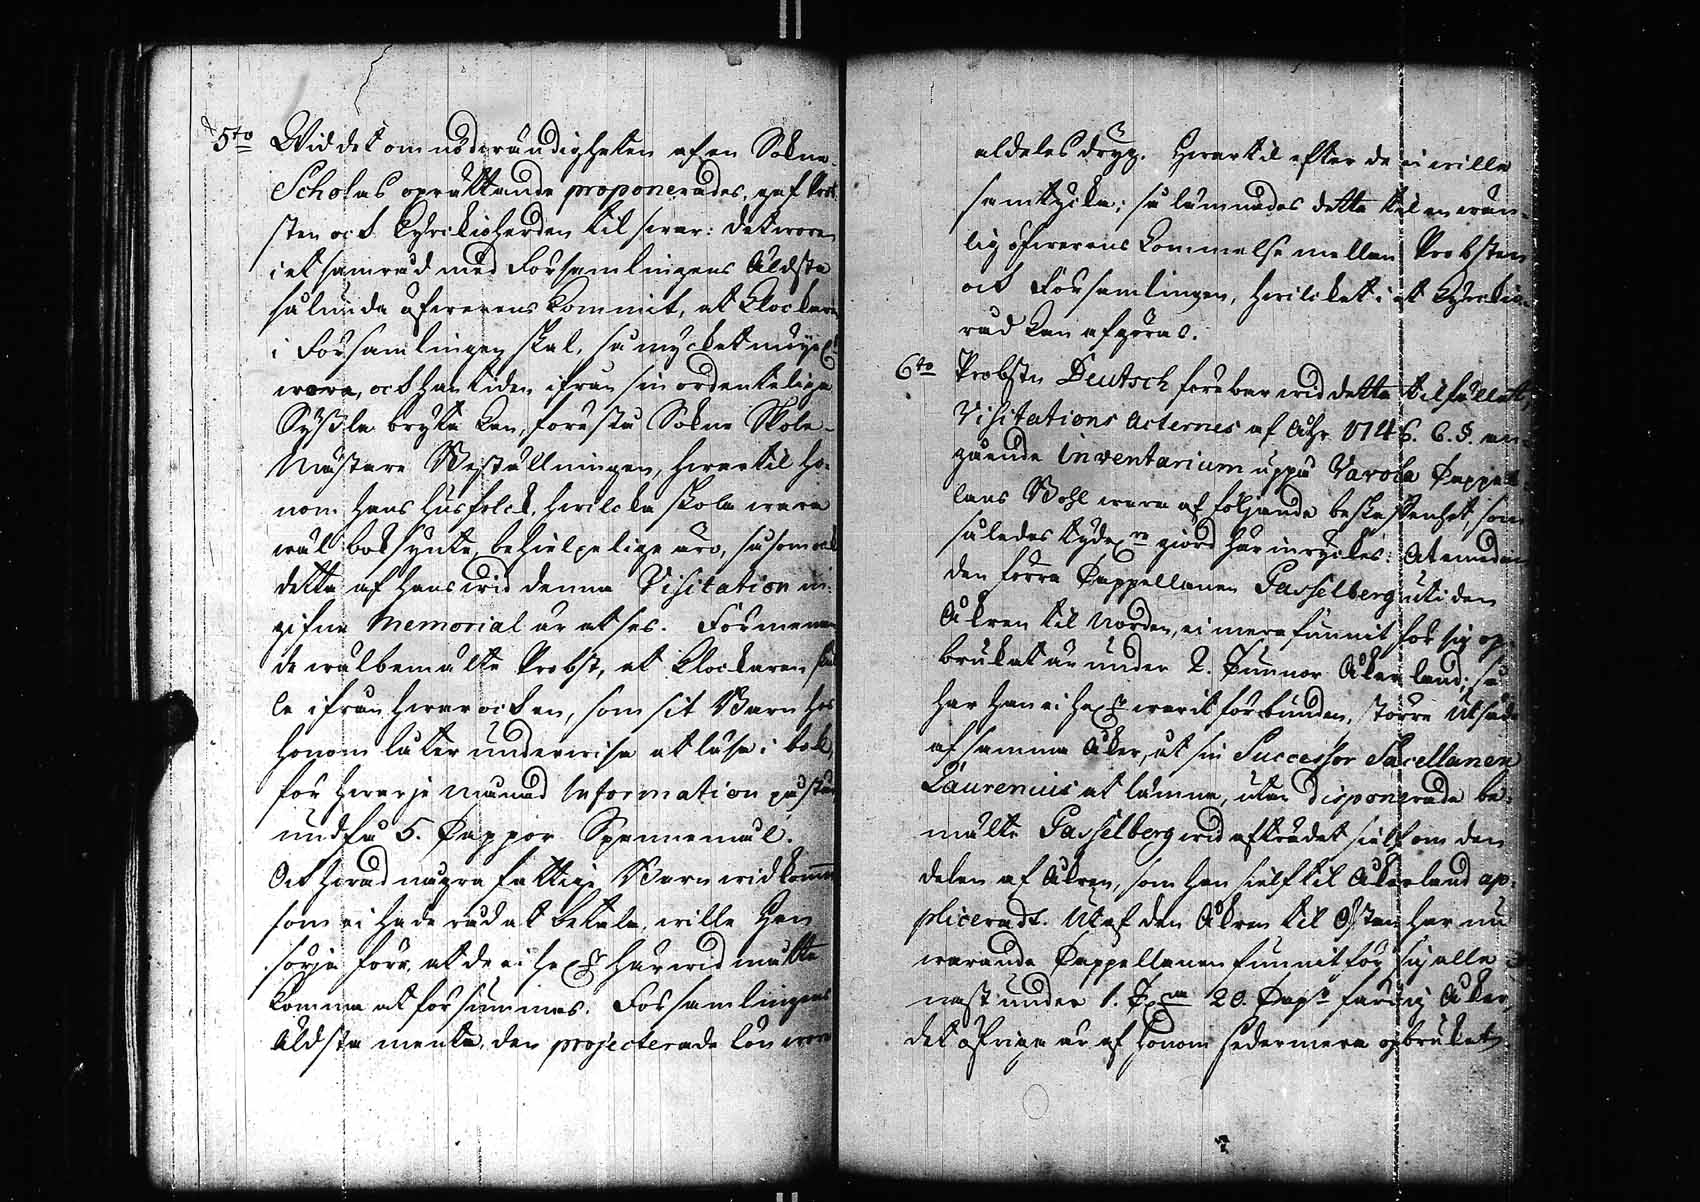 5to Wid det om nödwändigheten af en Sokne-
Scholas oprättande proponerades, gaf Prob-
sten och Kyrckioherden til swar: det wore
i et samråd med Församlingens Äldsta
sålunda öfwerens kommit, at Klockaren
i Församlingen skal, så mycket möjel.t
wara, och han tiden ifrån sin ordenteliga
Syßla bryta kan, förestå Sokne Skole-
Mästare Beställningen, hwartil ho-
nom hans husfolck, hwilcka skola wara
wäl bok synte, behielpelige äro, såsom ock
detta af hans wid denna Visitation in-
gifne Memorial är at ses. Förmenan-
de wälbemälte Probst, at Klockaren skul-
le ifrån hwar och en, som sit Barn hos
honom låter underwisa at läsa i bok,
för hwarje månad Information på stån
undfå 5. Kappor Spannemål.
Och hwad några fattiga Barn widkomma
som ei hade råd at betala, wille han
sörja före, at de ei heller härwid måtte
komma at försummas. Församlingens
Äldsta mente, den projecterade lön wara
aldeles dryg. Hwartil efter de ei wille
samtycka; så lämnades detta til en wän-
lig öfwerens kommelse mellan Probsten
och Församlingen, hwilcket i et Kyrckio-
råd kan afgöras.
6to Probsten Deutsch förebar wid detta tilfället,
Visitations Acternes af Åhr 1746. 6. §. an-
gående Inventarium uppå Vavola Cappel-
lans Bohl wara af följande beskaffenhet, som
således tydel.re giord här inryckes: At emedan
den förra Cappellanen Gasselberg uti den
Åkren til Norden, ei mera funnit för sig op-
brukat än under 2. Tunnor Åkerland; så
har han ei heller warit förbunden, större Utsäde
af samma Åker, åt sin Successor Sacellanen
Laurenius at lämna, utan disponerade be-
mälte Gasselberg wid afträdet sielf om den
delen af Åkren, som han sielf til Åkerland ap-
plicerade. Utaf den Åkren til Östan har nu
warande Cappellanen funnit för sig alle-
nast under 1. T:na 20. Cap:r färdig Åker,
det öfriga är af honom sedermera opbrukat,